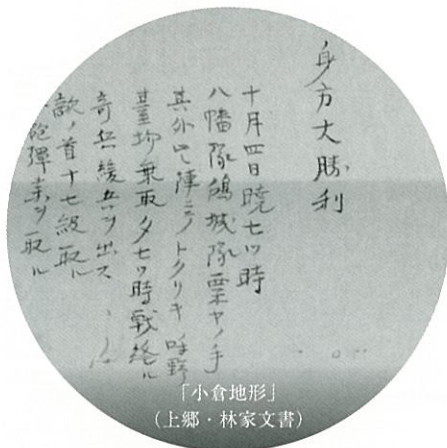 身方大勝利
十月四日暁七ツ時
八幡隊鴻城隊粟ヤノ手
其外四陣ニノトクリキノ味野
臺場乗取夕七ツ時戦終ル
奇兵緩兵ヲ出ス
敵ノ首十七級取ル
砲弾薬ヲ取ル
「小倉地形」
(上郷・林家文書)